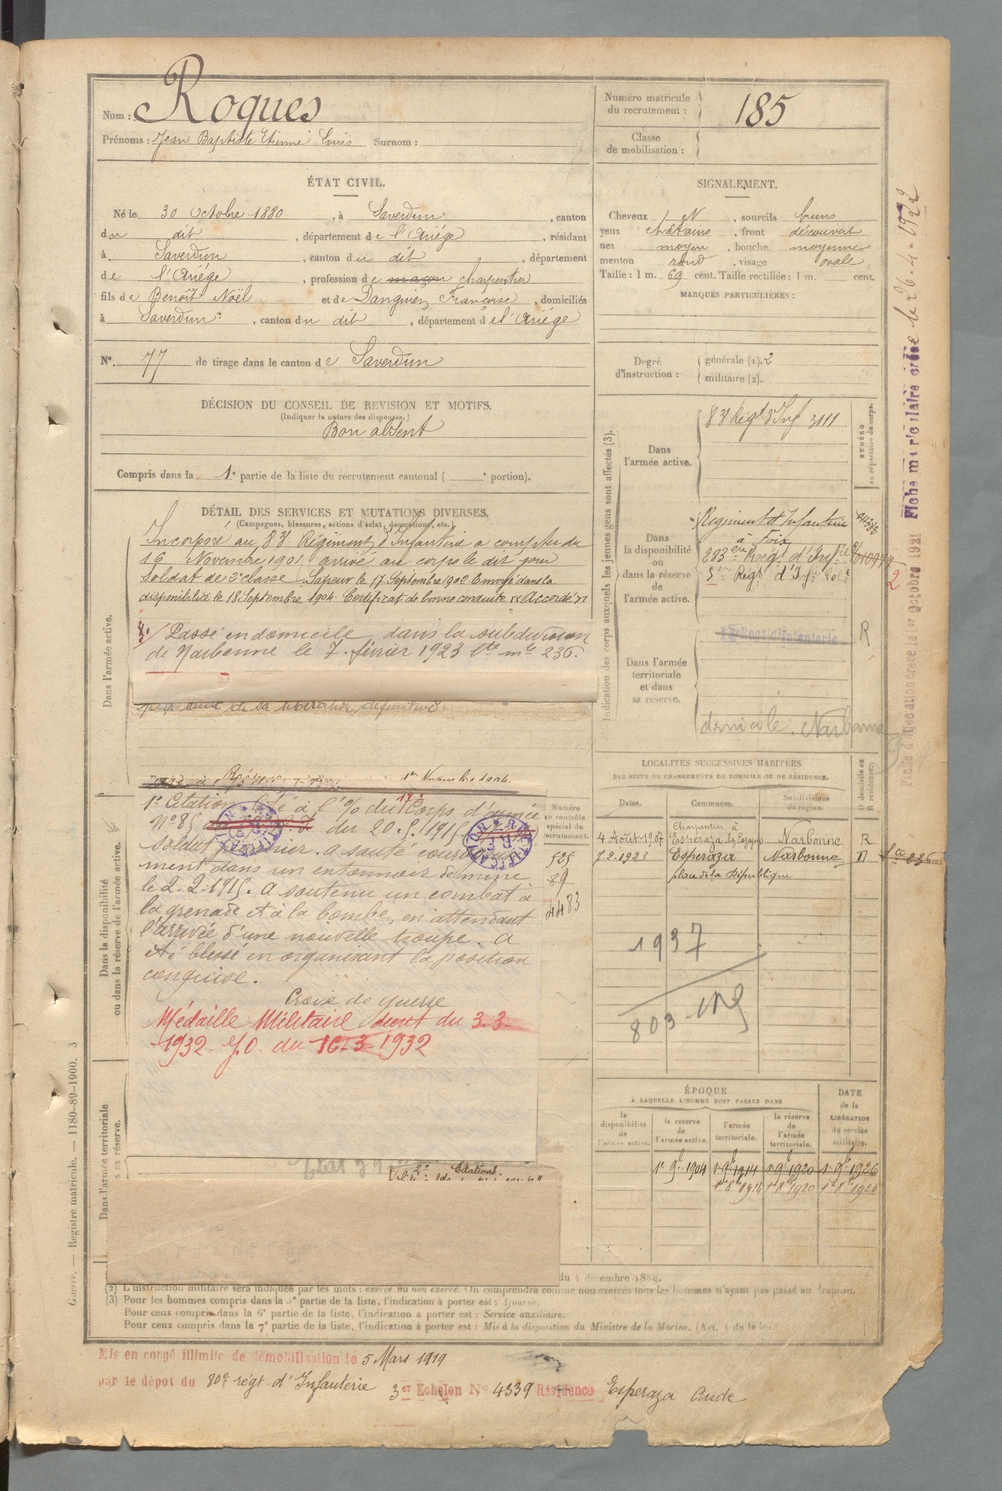 Nom : Roques
Prénoms : Jean Baptiste Etienne Louis Surnom :
Numéro matricule du recrutement : 185
Classe de mobilisation :
ÉTAT CIVIL.
Né le 30 Octobre 1880, à Saverdun, canton
du dit, département de l'Ariége, résidant
à Saverdun, canton du dit, département
de l'Ariége, profession de maçon charpentier
fils de Benoît Noël et de Françoise, domiciliés
à Saverdun, canton du dit, département de l'Ariége
N° 77 de tirage dans le canton de Saverdun
SIGNALEMENT.
Cheveux N, sourcils bruns
yeux châtains, front découvert
nez moyen, bouche moyenne
menton rond, visage ovale
Taille : 1 m. 69 cent. Taille rectifiée : 1 m. cent.
MARQUES PARTICULIÈRES :
Degré d'instruction : générale (1). 2
militaire (2).
DÉCISION DU CONSEIL DE REVISION ET MOTIFS.
(Indiquer la nature des dispenses.)
Bon absent
Compris dans la 1e partie de la liste du recrutement cantonal ( e portion).
DÉTAIL DES SERVICES ET MUTATIONS DIVERSES.
(Campagnes, blessures, actions d'éclat, décorations, etc.)
Incorporé au 83e Régiment d'Infanterie a compter du
16 Novembre 1901 arrivé au corps le dit jour
Soldat de 2e classe. Sapeur le 17 Septembre 1902 Envoyé dans la
disponibilité le 18 Septembre 1904 Certificat de bonne conduite "Accordé"
Passé en domicile, dans la subdivision
de Narbonne le 7 février 1923 236.
de sa libération définitive
1er Novembre 1904.
1e Citation Cité à l'O/ du 17e Corps d'armée
N° 85 du 20.
soldat
ment dans un entonnoir de mine
le 2-2-1915. A soutenu un combat à
la grenade et à la bombe, en attendant
l'arrivée d'une nouvelle troupe. A
été blessé en organisant la position
conquise.
Croix de guerre
Médaille Militaire décret du 3-3-
1932 J.O. du 16-3-1932
Citations.
Dans l'armée active.
Dans la disponibilité ou dans la réserve de l'armée active.
Dans l'armée territoriale
réserve.
Indication des corps auxquels les jeunes gens sont affectés (3).
Dans l'armée active.
83e Régt d'Inf 3111
NUMÉRO au répertoire du corps.
Dans la disponibilité ou dans la réserve de l'armée active.
Régiment d'Infanterie
à Foix
283eme Rég. d'Infie
Régt d'Inf
2
R
Dans l'armée territoriale et dans sa réserve.
domicile Narbonne
Numéro au contrôle spécial du recrutement.
525
89
4483
LOCALITÉS SUCCESSIVES HABITÉES
PAR SUITE DE CHANGEMENTS DE DOMICILE OU DE RÉSIDENCE.
Dates. Communes. Subdivisions de région. Domicile ou résidence.
Charpentier à
4 Août 1907 Espéraza Narbonne R
7.2.1923 Espéraza Narbonne D 236
place de la République
1937
803
ÉPOQUE
À LAQUELLE L'HOMME DOIT PASSER DANS
la disponibilité de l'armée active. la réserve de l'armée active. l'armée territoriale. la réserve de l'armée territoriale.
DATE de la LIBÉRATION du service militaire.
1er 9bre 1904 1er 9bre 1914 1er 9bre 1920 1er 9bre 1926
1er 8bre 1914 1er 8bre 1920 1er 8bre 1926
du 4 décembre 1889.
(2) L'instruction militaire sera indiquée par les mots : exercé ou non exercé. On comprendra comme non exercés tous les hommes n'ayant pas passé au drapeau.
(3) Pour les hommes compris dans la 5e partie de la liste, l'indication à porter est : Ajourné.
Pour ceux compris dans la 6e partie de la liste, l'indication à porter est : Service auxiliaire.
Pour ceux compris dans la 7e partie de la liste, l'indication à porter est : Mis à la disposition du Ministre de la Marine.
Mis en congé illimité de démobilisation le 5 Mars 1919
par le dépôt du 80e régt d'Infanterie 3er Echelon N° 4339 Résidence Espéraza Aude
Guerre. — Registre matricule. — 1180-89-1900. 3
Fiche matriculaire créée le 26-4-1922